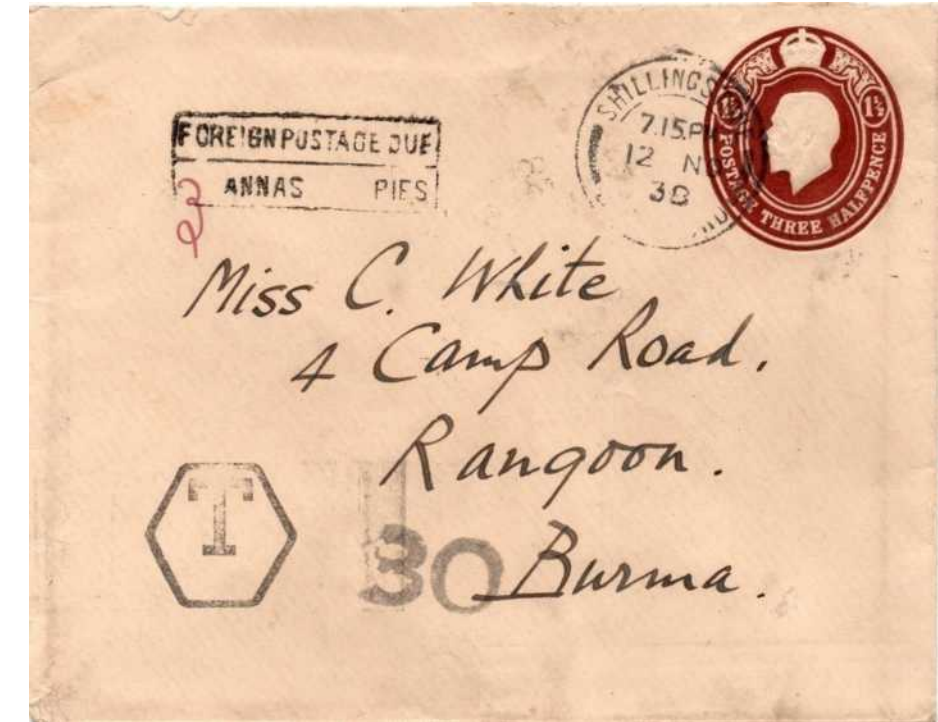 FOREIGN POSTAGE DUE
ANNAS PIES
SHILLINGS
7.15 PM
12 NO
38
1½ 1½
POSTAGE THREE HALFPENCE
Miss C. White
4 Camp Road.
Rangoon.
Burma.
T
30